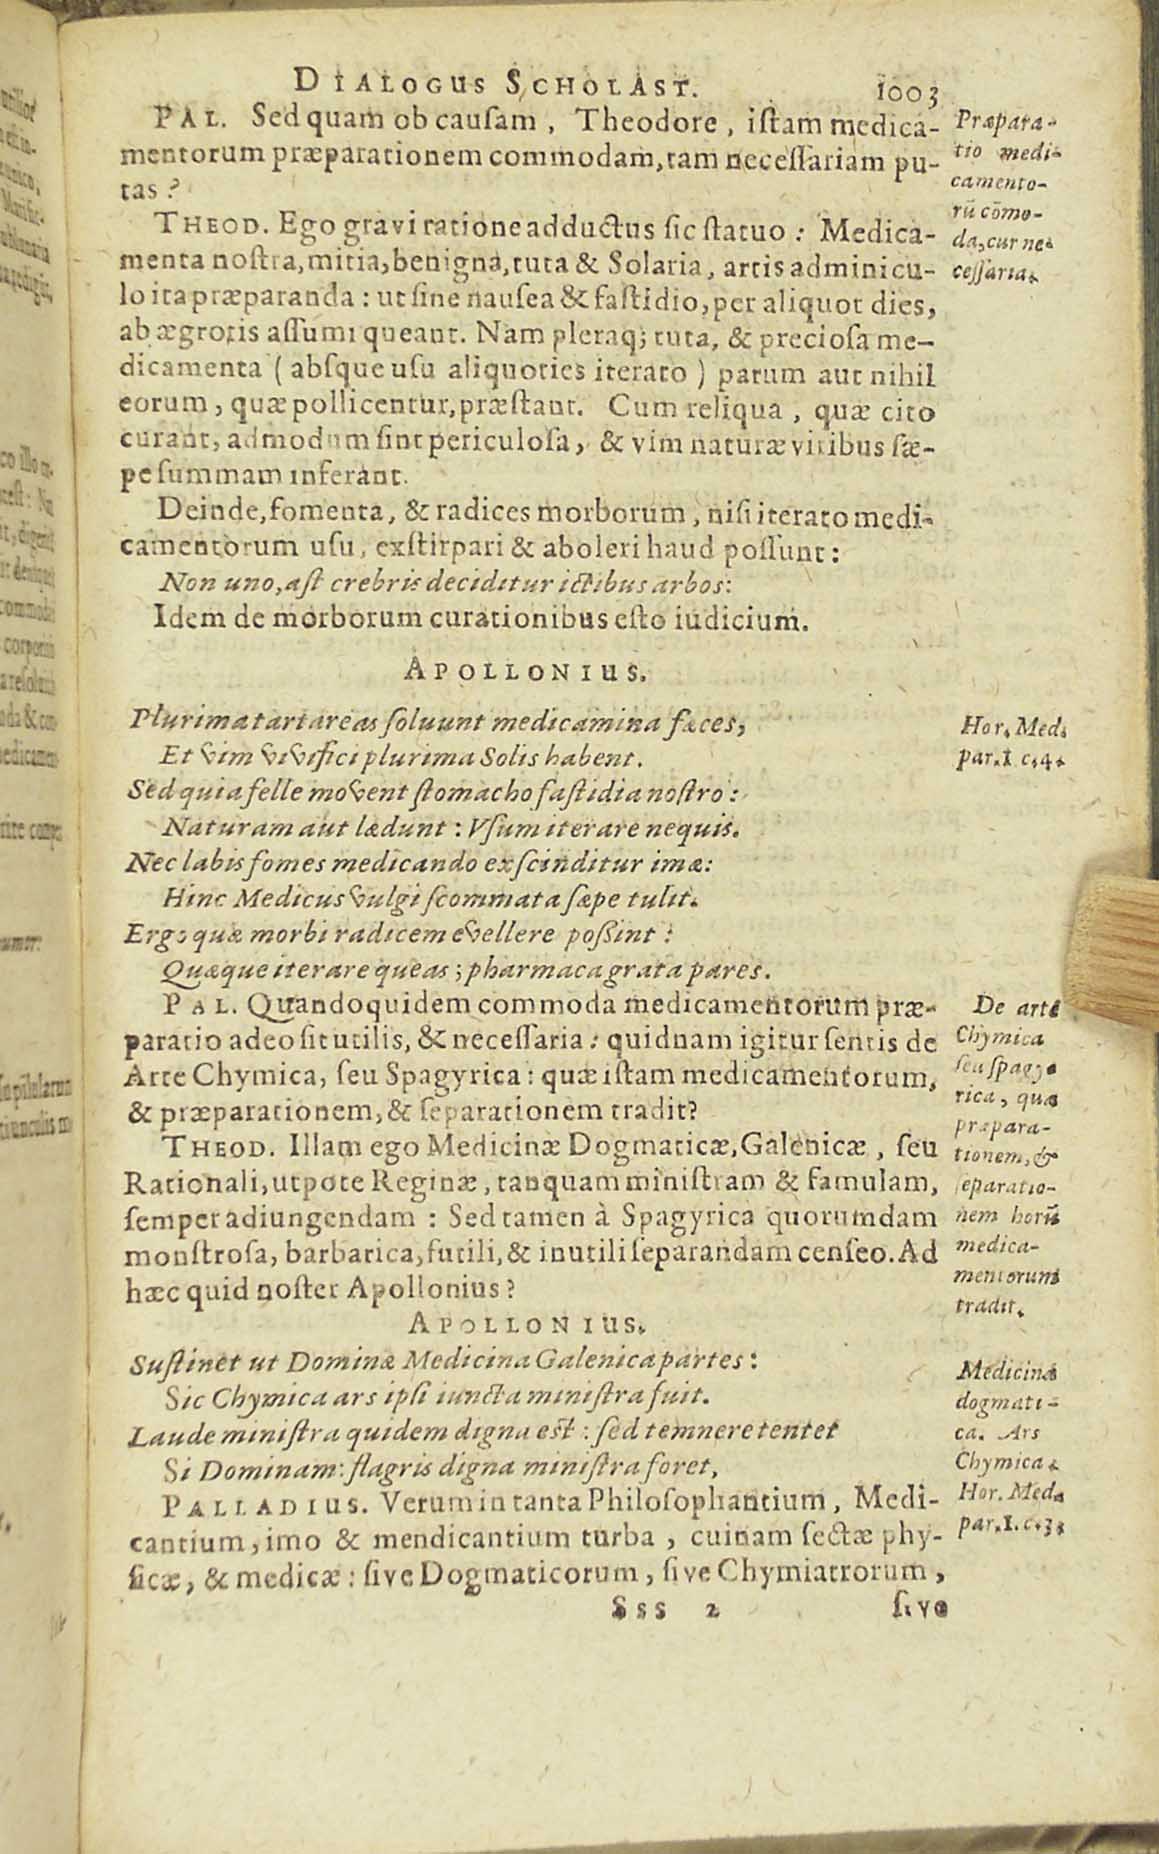 DIALOGUS SCHOLAST. 1003
PAL. Sed quam ob causam, Theodore, istam medica-
mentorum præparationem commodam, tam necessariam pu-
tas?
THEOD. Ego gravi ratione adductus sic statuo: Medica-
menta nostra, mitia, benigna, tuta & Solaria, artis adminicu-
lo ita præparanda: ut sine nausea & fastidio, per aliquot dies,
ab ægrotis assumi queant. Nam pleraq; tuta, & preciosa me-
dicamenta (absque usu aliquoties iterato) parum aut nihil
eorum, quæ pollicentur, præstant. Cum reliqua, quæ cito
curant, admodum sint periculosa, & vim naturæ viribus sæ-
pe summam inferant.
Præpara-
tio medi-
camento-
rū cōmo-
da, cur ne-
cessaria.
Deinde, fomenta, & radices morborum, nisi iterato medi-
camentorum usu, exstirpari & aboleri haud possunt:
Non uno, ast crebris deciditur ictibus arbos:
Idem de morborum curationibus esto iudicium.
APOLLONIUS.
Plurima tartareas soluunt medicamina fæces,
Et vim vivifici plurima Solis habent.
Sed quia felle movent stomacho fastidia nostro:
Naturam aut lædunt: Usum iterare nequis.
Nec labis fomes medicando exscinditur imæ:
Hinc Medicus vulgi scommata sæpe tulit.
Ergo quæ morbi radicem evellere possint:
Quæque iterare queas; pharmaca grata pares.
Hor. Med.
par. I. c. 4.
PAL. Quandoquidem commoda medicamentorum præ-
paratio adeo sit utilis, & necessaria: quidnam igitur sentis de
Arte Chymica, seu Spagyrica: quæ istam medicamentorum,
& præparationem, & separationem tradit?
THEOD. Illam ego Medicinæ Dogmaticæ, Galenicæ, seu
Rationali, utpote Reginæ, tanquam ministram & famulam,
semper adiungendam: Sed tamen à Spagyrica quorumdam
monstrosa, barbarica, futili, & inutili separandam censeo. Ad
hæc quid noster Apollonius?
De arte
Chymica
seu spagy-
rica, quæ
præpara-
tionem, &
separatio-
nem horū
medica-
mentorum
tradit.
APOLLONIUS.
Sustinet ut Dominæ Medicina Galenica partes:
Sic Chymica ars ipsi iuncta ministra fuit.
Laude ministra quidem digna est: sed temnere tentet
Si Dominam: flagris digna ministra foret,
Medicina
dogmati-
ca. Ars
Chymica.
Hor. Med.
par. I. c. 3.
PALLADIUS. Verum in tanta Philosophantium, Medi-
cantium, imo & mendicantium turba, cuinam sectæ phy-
sicæ, & medicæ: sive Dogmaticorum, sive Chymiatrorum,
Sss 2 sive